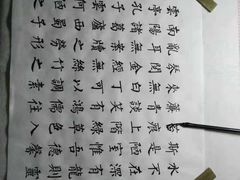 水不在深有龍則靈
斯是陋室惟吾德馨
苔痕上階綠草色入
簾青談笑有鴻儒往
來無白丁可以調素
琴閱金經無絲竹之
亂耳無案牘之勞形
南陽諸葛廬西蜀子
雲亭孔子云何陋之